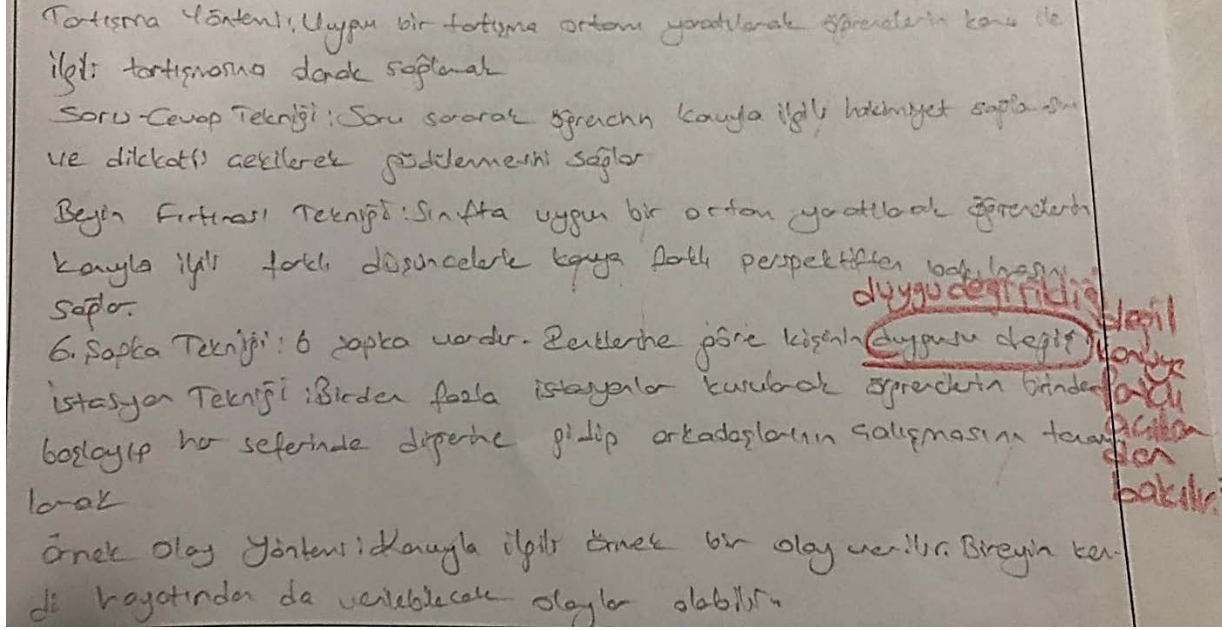 Tartışma Yöntemi: Uygun bir tartışma ortamı yaratılarak öğrencilerin konu ile
ilgili tartışmasına olanak sağlamak
Soru-Cevap Tekniği: Soru sorarak öğrencinin konuyla ilgili hakimiyet sağlaması
ve dikkati çekilerek güdülenmesini sağlar
Beyin Fırtınası Tekniği: Sınıfta uygun bir ortam yaratılarak öğrencilerin
konuyla ilgili farklı düşüncelerle konuya farklı perspektiften bakılmasını
sağlar.
duygu değişikliği değil konuya farklı açılardan bakılır.
6. Şapka Tekniği: 6 şapka vardır. Renklerine göre kişinin duygusu değişir
İstasyon Tekniği: Birden fazla istasyonlar kurularak öğrencilerin birinden
başlayıp her seferinde diğerine gidip arkadaşlarının çalışmasını tamam
lamak
Örnek Olay Yöntemi: Konuyla ilgili örnek bir olay verilir. Bireyin ken-
di hayatından da verilebilecek olaylar olabilir.